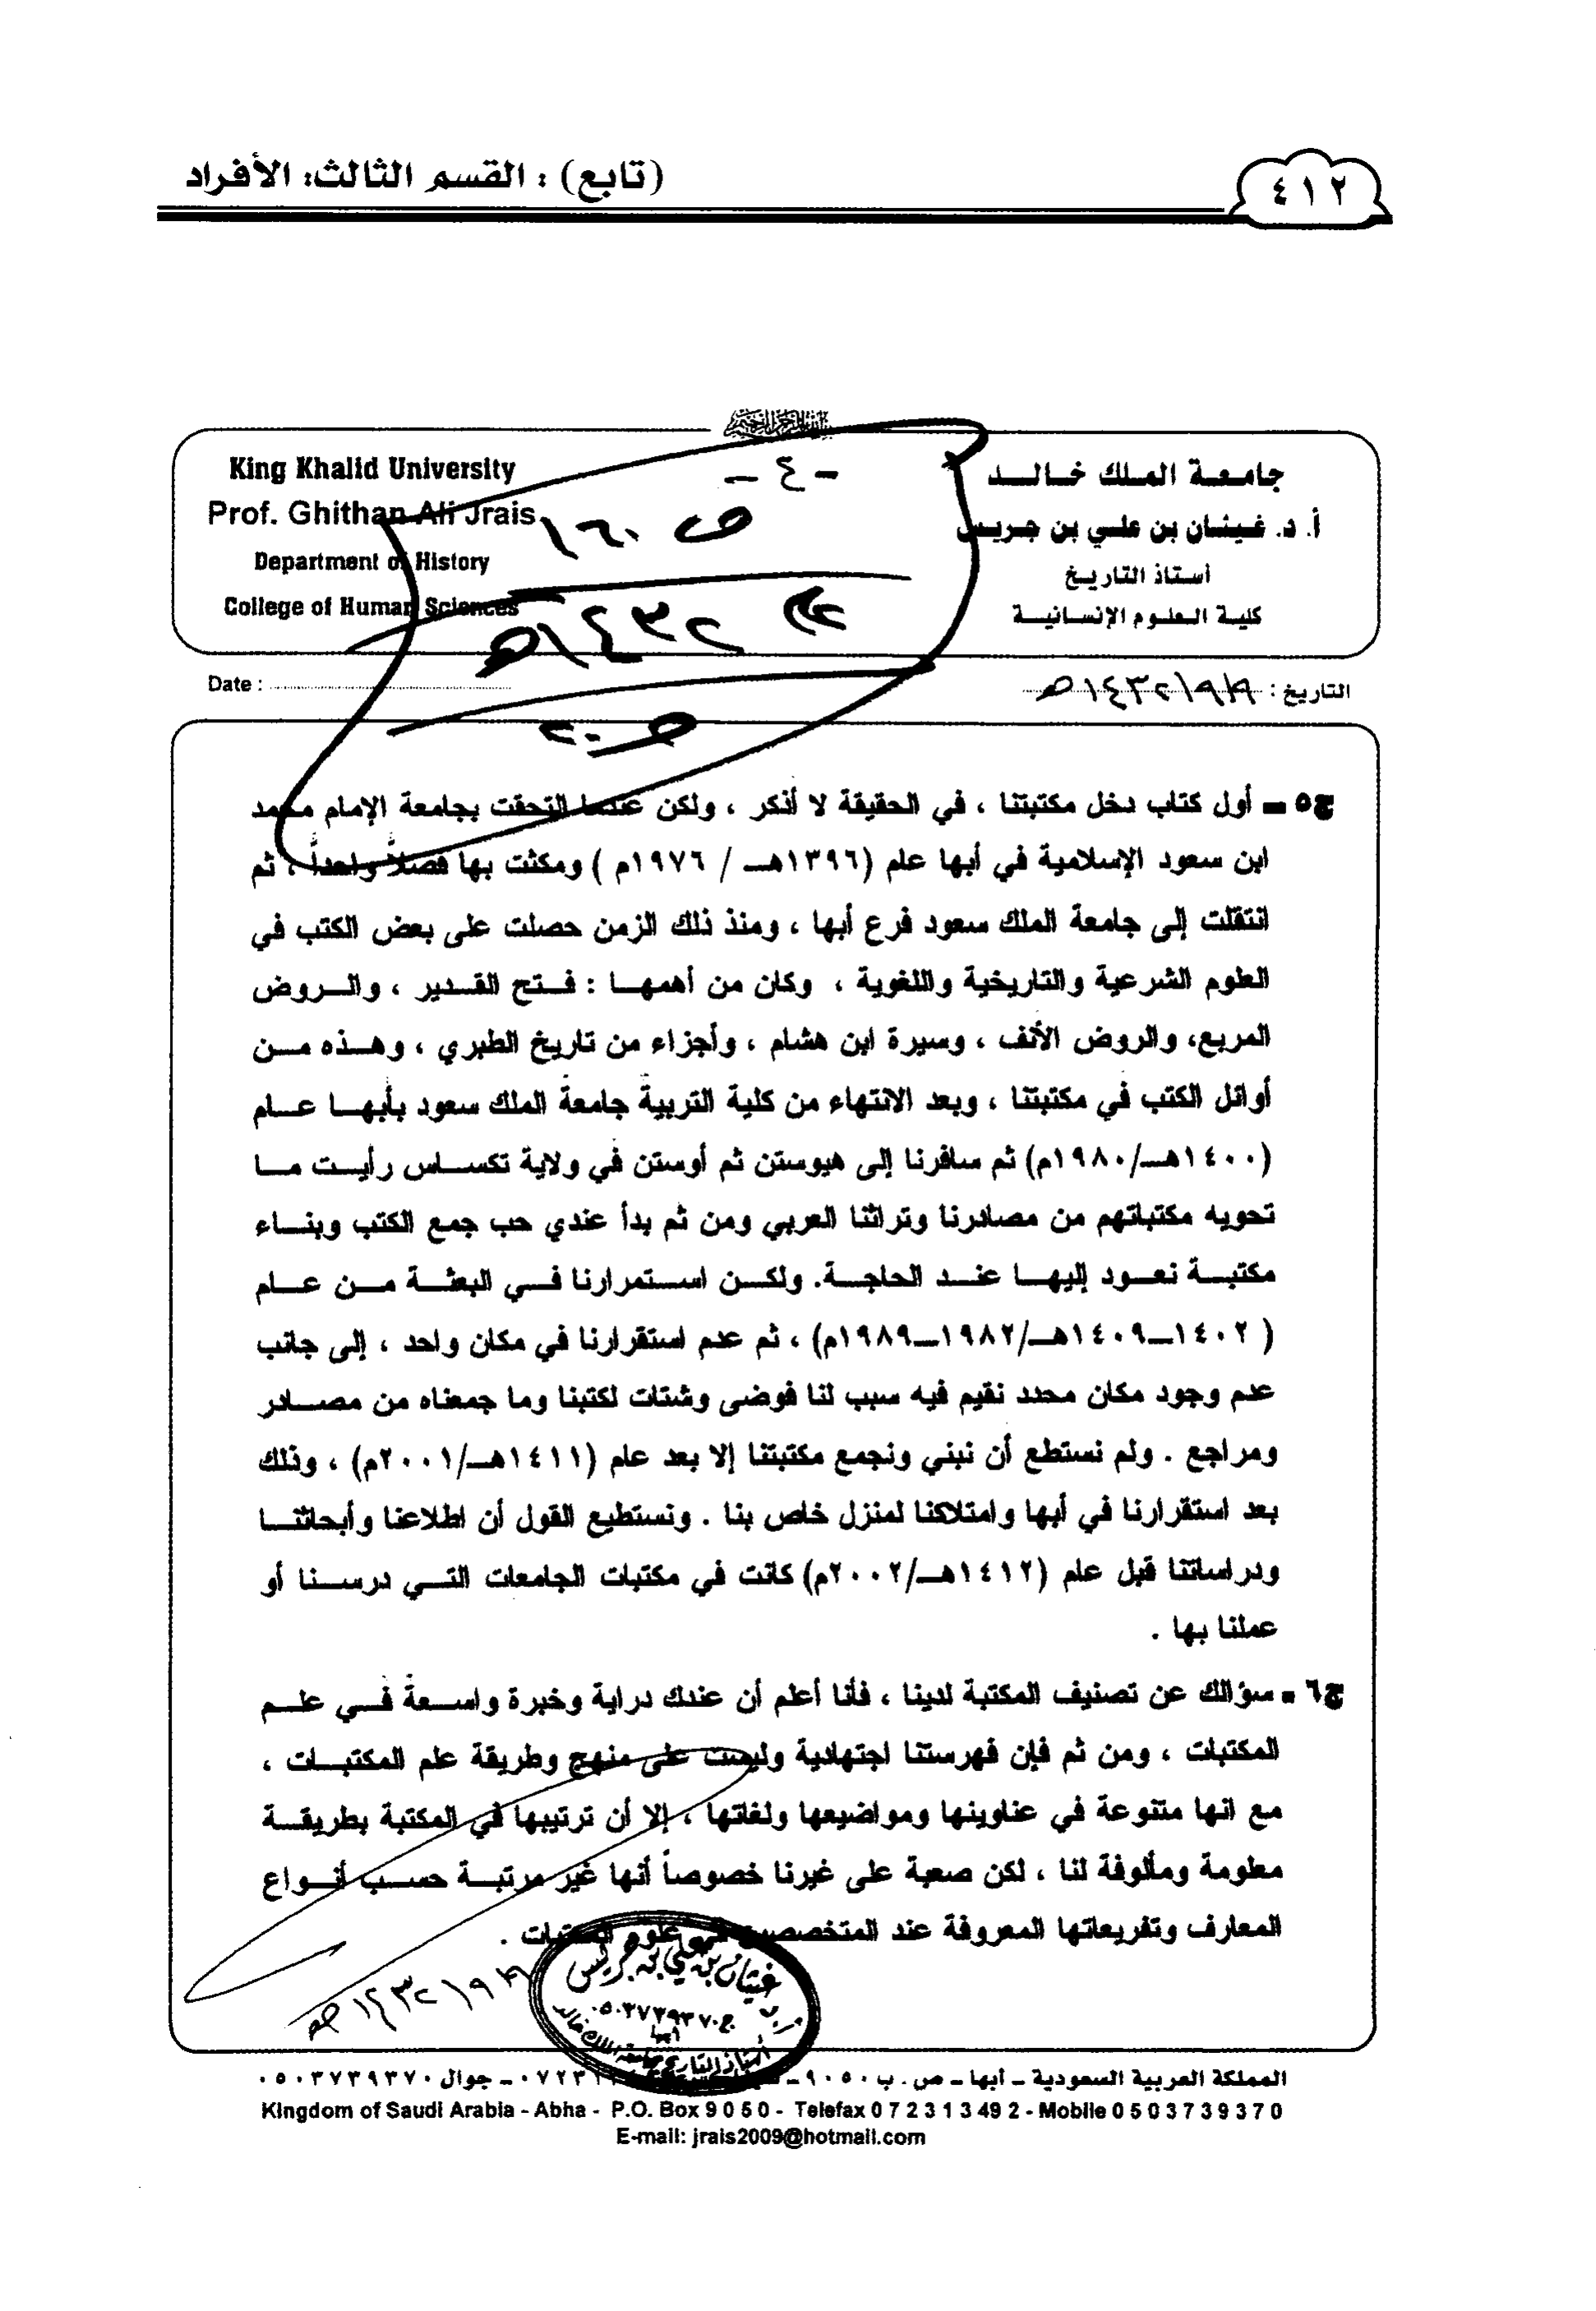 (تابع) : القسم الثالث: الأفراد
٤١٢
King Khalid University
Prof. Ghithan Ali Jrais
Department of History
College of Human Sciences
جامعة الملك خالد
أ. د. غيثان بن علي بن جريس
أستاذ التاريخ
كلية العلوم الإنسانية
- ٤ -
ص ١٦٠
١٤٣٢هـ
Date :
التاريخ : ١٤٣٢/٩/٩هـ
ج٥ - أول كتاب دخل مكتبتنا ، في الحقيقة لا أذكر ، ولكن عندما التحقت بجامعة الإمام محمد
ابن سعود الإسلامية في أبها عام (١٣٩٦هـ / ١٩٧٦م ) ومكثت بها فصلاً واحداً ، ثم
انتقلت إلى جامعة الملك سعود فرع أبها ، ومنذ ذلك الزمن حصلت على بعض الكتب في
العلوم الشرعية والتاريخية واللغوية ، وكان من أهمها : فتح القدير ، والروض
المربع، والروض الأنف ، وسيرة ابن هشام ، وأجزاء من تاريخ الطبري ، وهذه من
أوائل الكتب في مكتبتنا ، وبعد الانتهاء من كلية التربية جامعة الملك سعود بأبها عام
(١٤٠٠هـ/١٩٨٠م) ثم سافرنا إلى هيوستن ثم أوستن في ولاية تكساس رأيت ما
تحويه مكتباتهم من مصادرنا وتراثنا العربي ومن ثم بدأ عندي حب جمع الكتب وبناء
مكتبة نعود إليها عند الحاجة. ولكن استمرارنا في البعثة من عام
( ١٤٠٢-١٤٠٩هـ/١٩٨٢-١٩٨٩م) ، ثم عدم استقرارنا في مكان واحد ، إلى جانب
عدم وجود مكان محدد نقيم فيه سبب لنا فوضى وشتات لكتبنا وما جمعناه من مصادر
ومراجع . ولم نستطع أن نبني ونجمع مكتبتنا إلا بعد عام (١٤١١هـ/٢٠٠١م) ، وذلك
بعد استقرارنا في أبها وامتلاكنا لمنزل خاص بنا . ونستطيع القول أن اطلاعنا وأبحاثنا
ودراساتنا قبل عام (١٤١٢هـ/٢٠٠٢م) كانت في مكتبات الجامعات التي درسنا أو
عملنا بها .
ج٦ - سؤالك عن تصنيف المكتبة لدينا ، فأنا أعلم أن عندك دراية وخبرة واسعة في علم
المكتبات ، ومن ثم فإن فهرستنا اجتهادية وليست على منهج وطريقة علم المكتبات ،
مع انها متنوعة في عناوينها ومواضيعها ولغاتها ، إلا أن ترتيبها في المكتبة بطريقة
معلومة ومألوفة لنا ، لكن صعبة على غيرنا خصوصاً أنها غير مرتبة حسب أنواع
المعارف وتفريعاتها المعروفة عند المتخصصين في علوم المكتبات .
١٤٣٢/٩/٩هـ
غيثان بن علي بن جريس
ج٠٥٠٣٧٣٩٣٧٠
أبها
أستاذ التاريخ بجامعة الملك خالد
المملكة العربية السعودية - أبها - ص. ب ٩٠٥٠ - جوال ٠٥٠٣٧٣٩٣٧٠
Kingdom of Saudi Arabia - Abha - P.O. Box 9 0 5 0 - Telefax 0 7 2 3 1 3 49 2 - Mobile 0 5 0 3 7 3 9 3 7 0
E-mail: jrais2009@hotmail.com